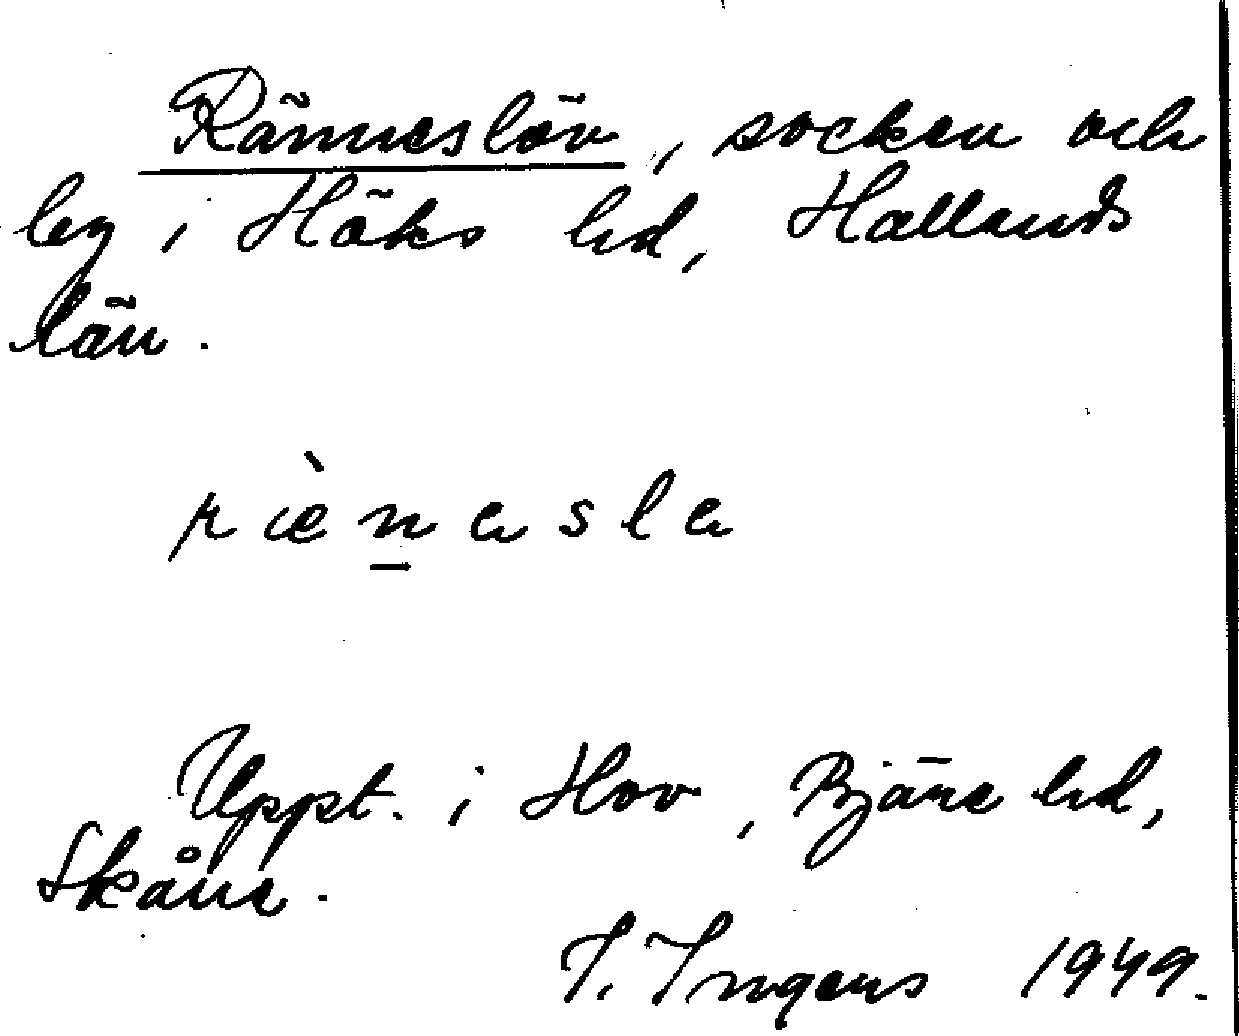 Ränneslöv, socken och
by i Höks hd, Hallands
län.
ræ̀nesle
Uppt. i Hov, Bjäre hd,
Skåne.
I. Ingers 1949.